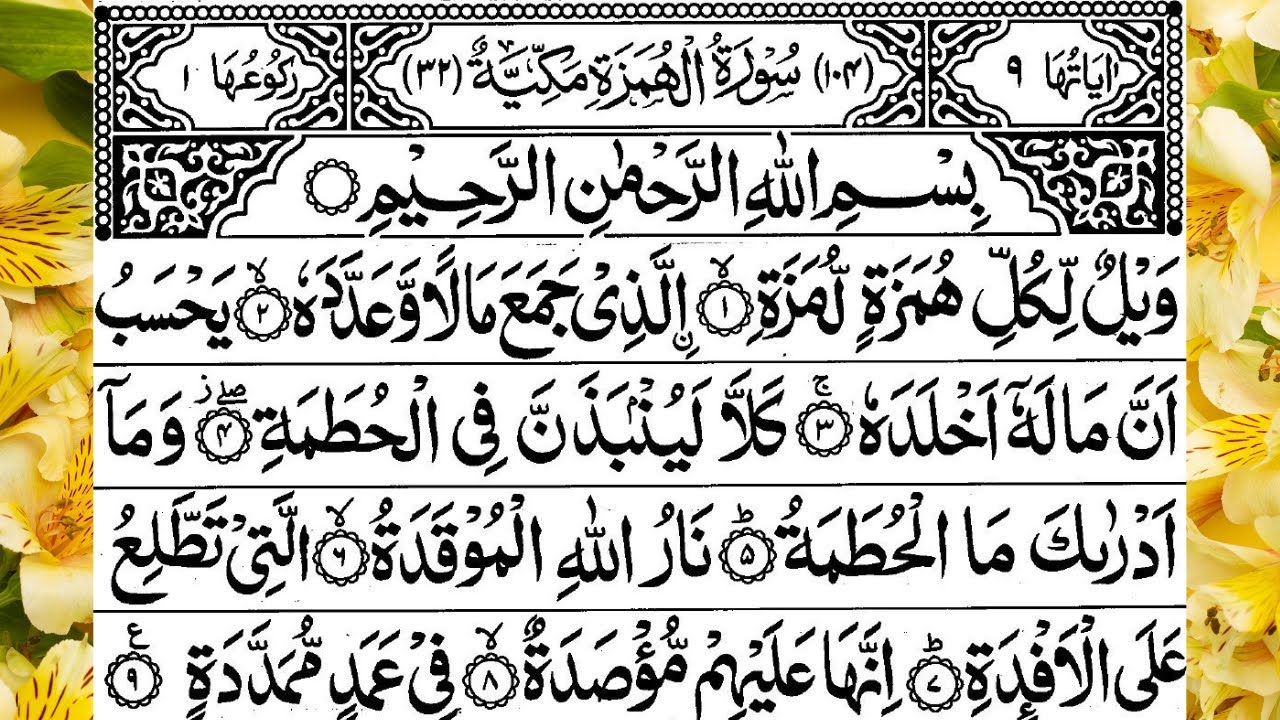 اٰيَاتُهَا ٩ (١٠٤) سُوْرَةُ الْهُمَزَةِ مَكِّيَّةٌ (٣٢) رُكُوْعُهَا ١
بِسْمِ اللهِ الرَّحْمٰنِ الرَّحِيْمِ
وَيْلٌ لِّكُلِّ هُمَزَةٍ لُّمَزَةِ ۙ﴿١﴾ ۨالَّذِىْ جَمَعَ مَالًا وَّعَدَّدَهٗ ۙ﴿٢﴾ يَحْسَبُ
اَنَّ مَالَهٗۤ اَخْلَدَهٗ ۚ﴿٣﴾ كَلَّا لَيُنْۢبَذَنَّ فِى الْحُطَمَةِ ۖز﴿۴﴾ وَمَاۤ
اَدْرٰىكَ مَا الْحُطَمَةُ ؕ﴿۵﴾ نَارُ اللهِ الْمُوْقَدَةُ ۙ﴿۶﴾ الَّتِىْ تَطَّلِعُ
عَلَى الْاَفْـِٕدَةِ ؕ﴿٧﴾ اِنَّهَا عَلَيْهِمْ مُّؤْصَدَةٌ ۙ﴿٨﴾ فِىْ عَمَدٍ مُّمَدَّدَةٍ ﴿٩﴾ ع